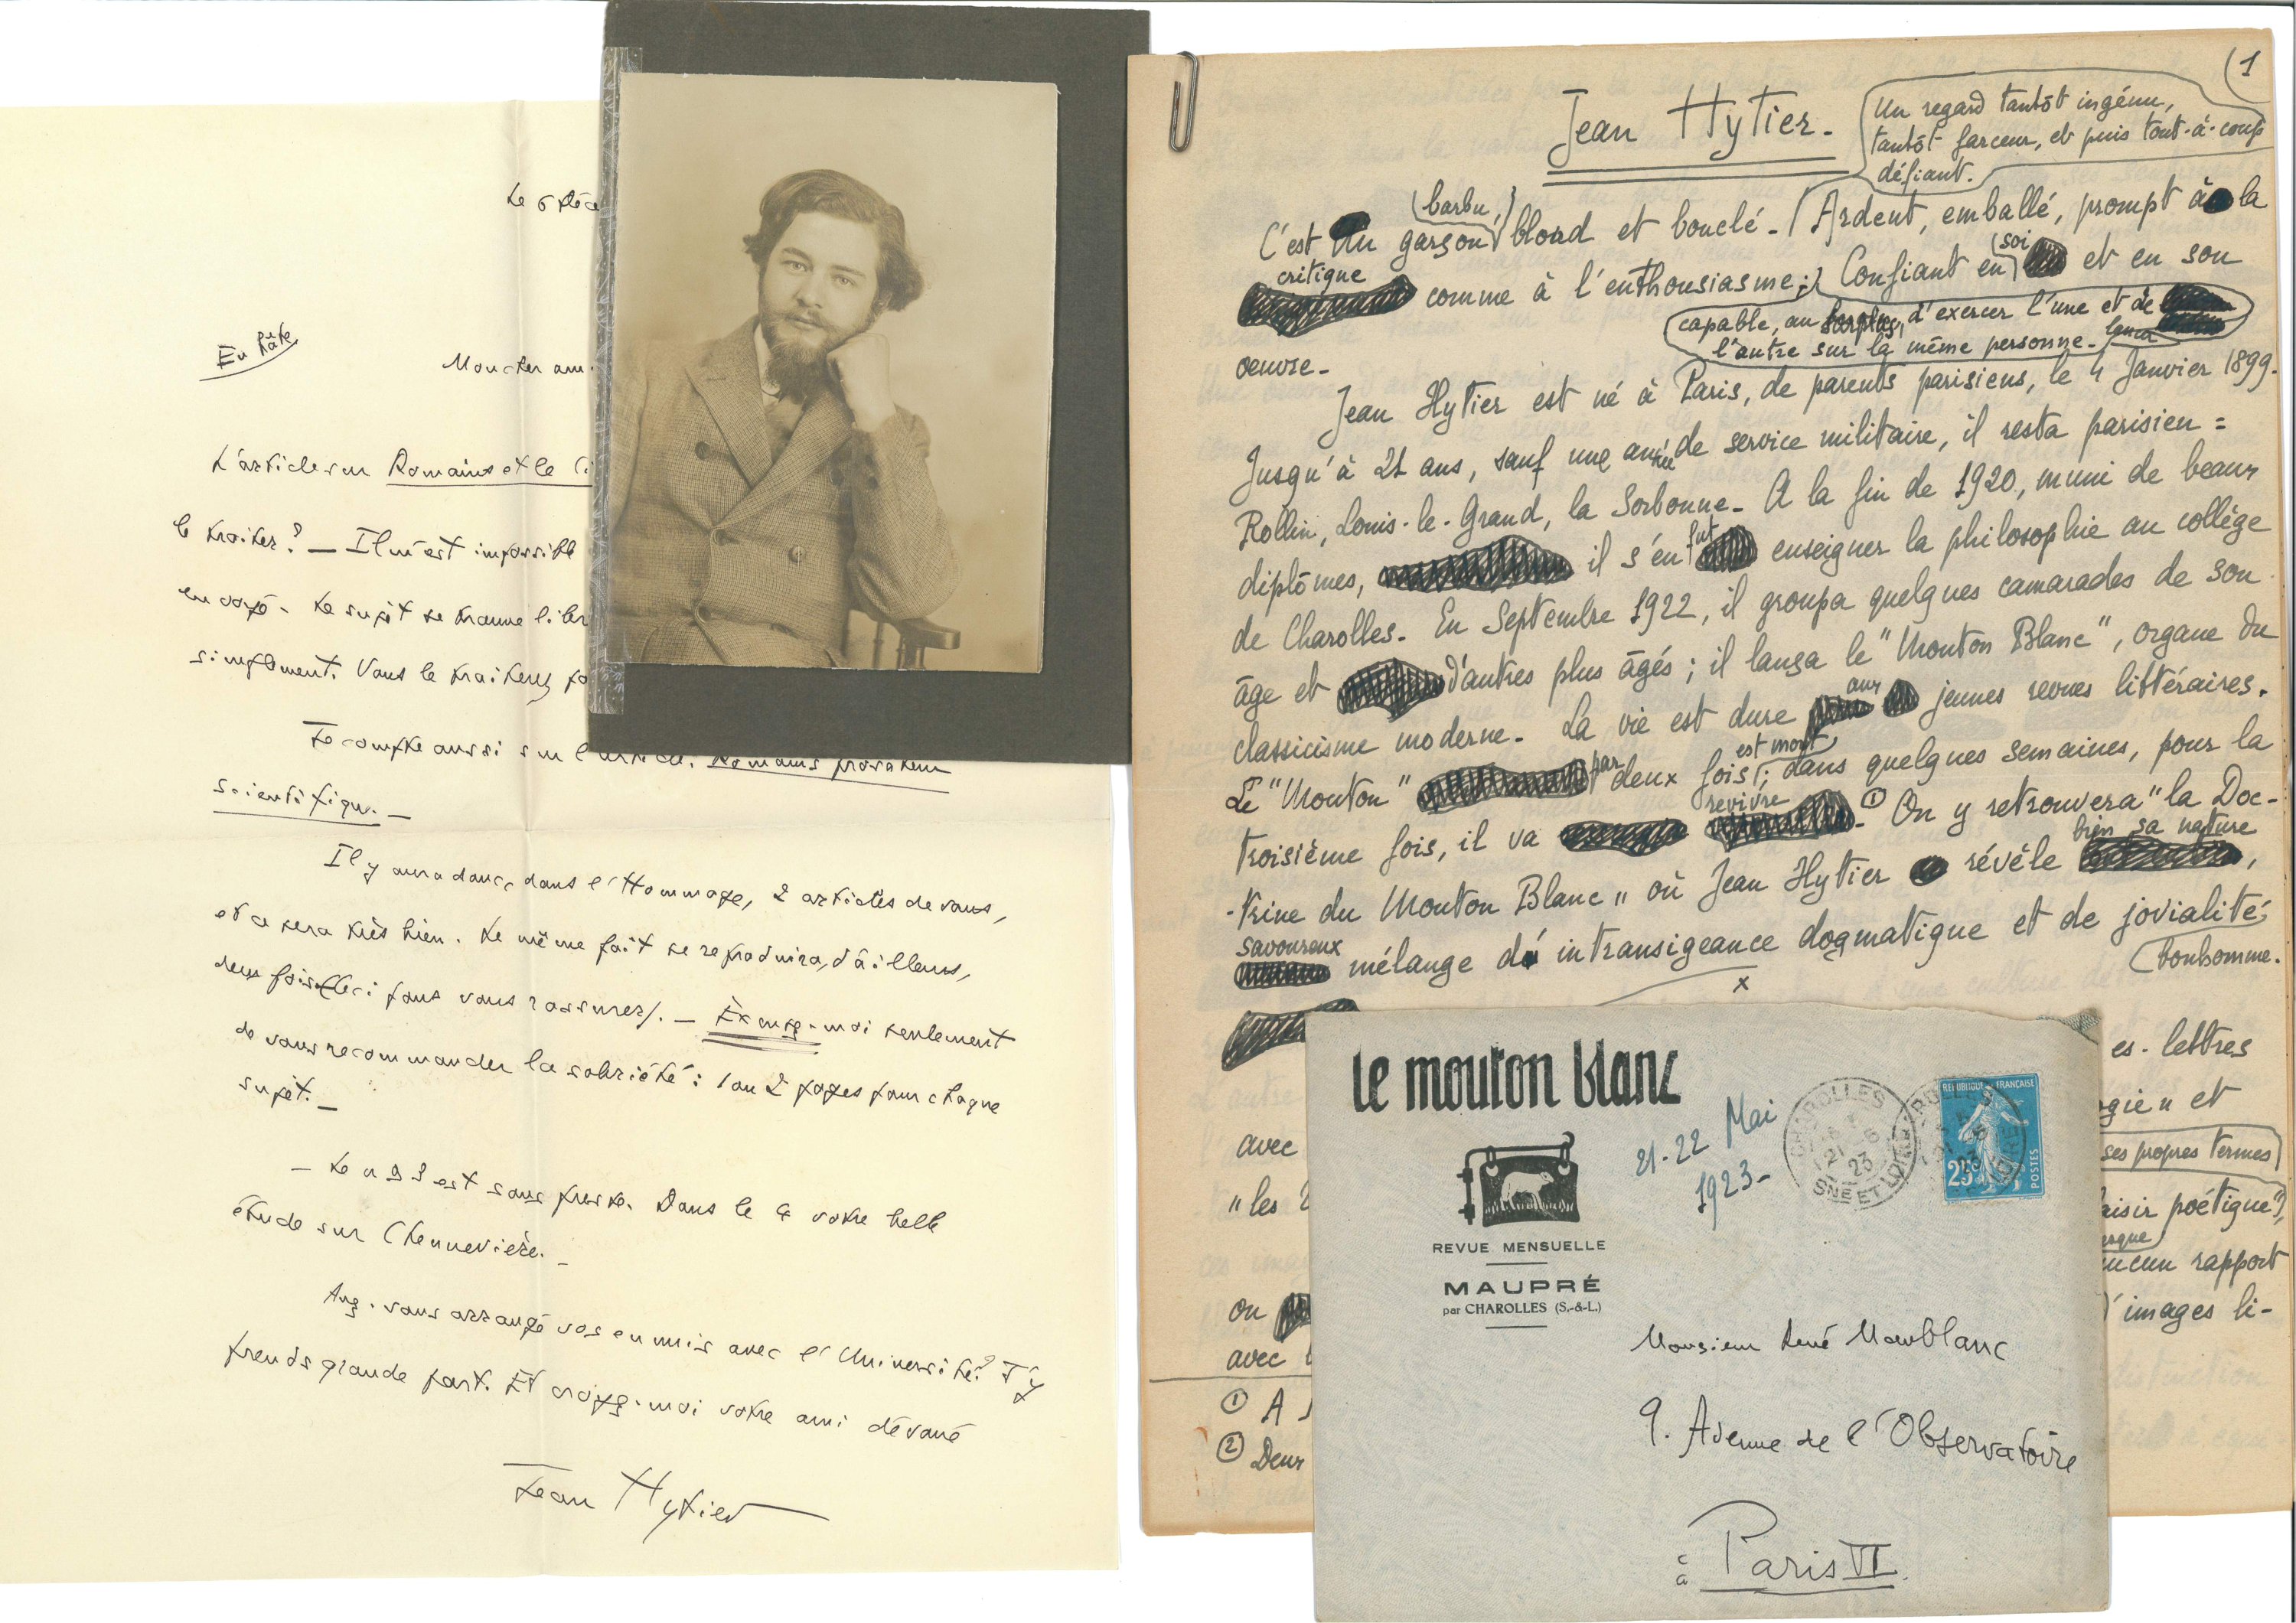 Le 6 Déce
En hâte
Mon cher ami.
L'article sur Romains et le Ci
le traiter? — Il m'est impossible
en copé - Le sujet se trouve liber
simplement. Vous le traiterez po
Je compte aussi sur l'article. Romains prosateur
scientifique. —
Il y aura donc, dans l'Hommage, 2 articles de vous,
et ce sera très bien. Le même fait se reproduira, d'ailleurs,
deux fois (ceci pour vous rassurer). — Excusez-moi seulement
de vous recommander la sobriété : 1 ou 2 pages pour chaque
sujet. —
— Le n° 3 est sous presse. Dans le 4 votre belle
étude sur Chennevière. —
Avez-vous arrangé vos ennuis avec l'Université? J'y
prends grande part. Et croyez-moi votre ami dévoué
Jean Hytier
(1
Jean Hytier.
Un regard tantôt ingénu,
tantôt farceur, et puis tout-à-coup
défiant.
C'est un garçon barbu, blond et bouclé. Ardent, emballé, prompt à la
critique comme à l'enthousiasme; Confiant en soi et en son
capable, au surplus, d'exercer l'une et
l'autre sur la même personne.
oeuvre.
Jean Hytier est né à Paris, de parents parisiens, le 4 Janvier 1899.
Jusqu'à 21 ans, sauf une année de service militaire, il resta parisien :
Rollin, Louis-le-Grand, la Sorbonne. A la fin de 1920, muni de beaux
diplômes, il s'en fut enseigner la philosophie au collège
de Charolles. En Septembre 1922, il groupa quelques camarades de son
âge et d'autres plus âgés ; il lança le "Mouton Blanc", organe du
classicisme moderne. La vie est dure aux jeunes revues littéraires.
Le "Mouton" par deux fois est mort; dans quelques semaines, pour la
troisième fois, il va revivre. ① On y retrouvera "la Doc-
-trine du Mouton Blanc" où Jean Hytier révèle bien sa nature,
savoureux mélange d'intransigeance dogmatique et de jovialité
bonhomme.
x
es-lettres
ogie" et
avec
ses propres termes
"les
aisir poétique"),
esque
ucun rapport
ou
d'images li-
avec
① A
② Deux
le mouton blanc
21-22 Mai
1923-
CHAROLLES
21-5
23
SNE ET LOIRE
REPUBLIQUE FRANÇAISE
25c
POSTES
REVUE MENSUELLE
MAUPRÉ
par CHAROLLES (S.-&-L.)
Monsieur René Maublanc
9. Avenue de l'Observatoire
à Paris VI.